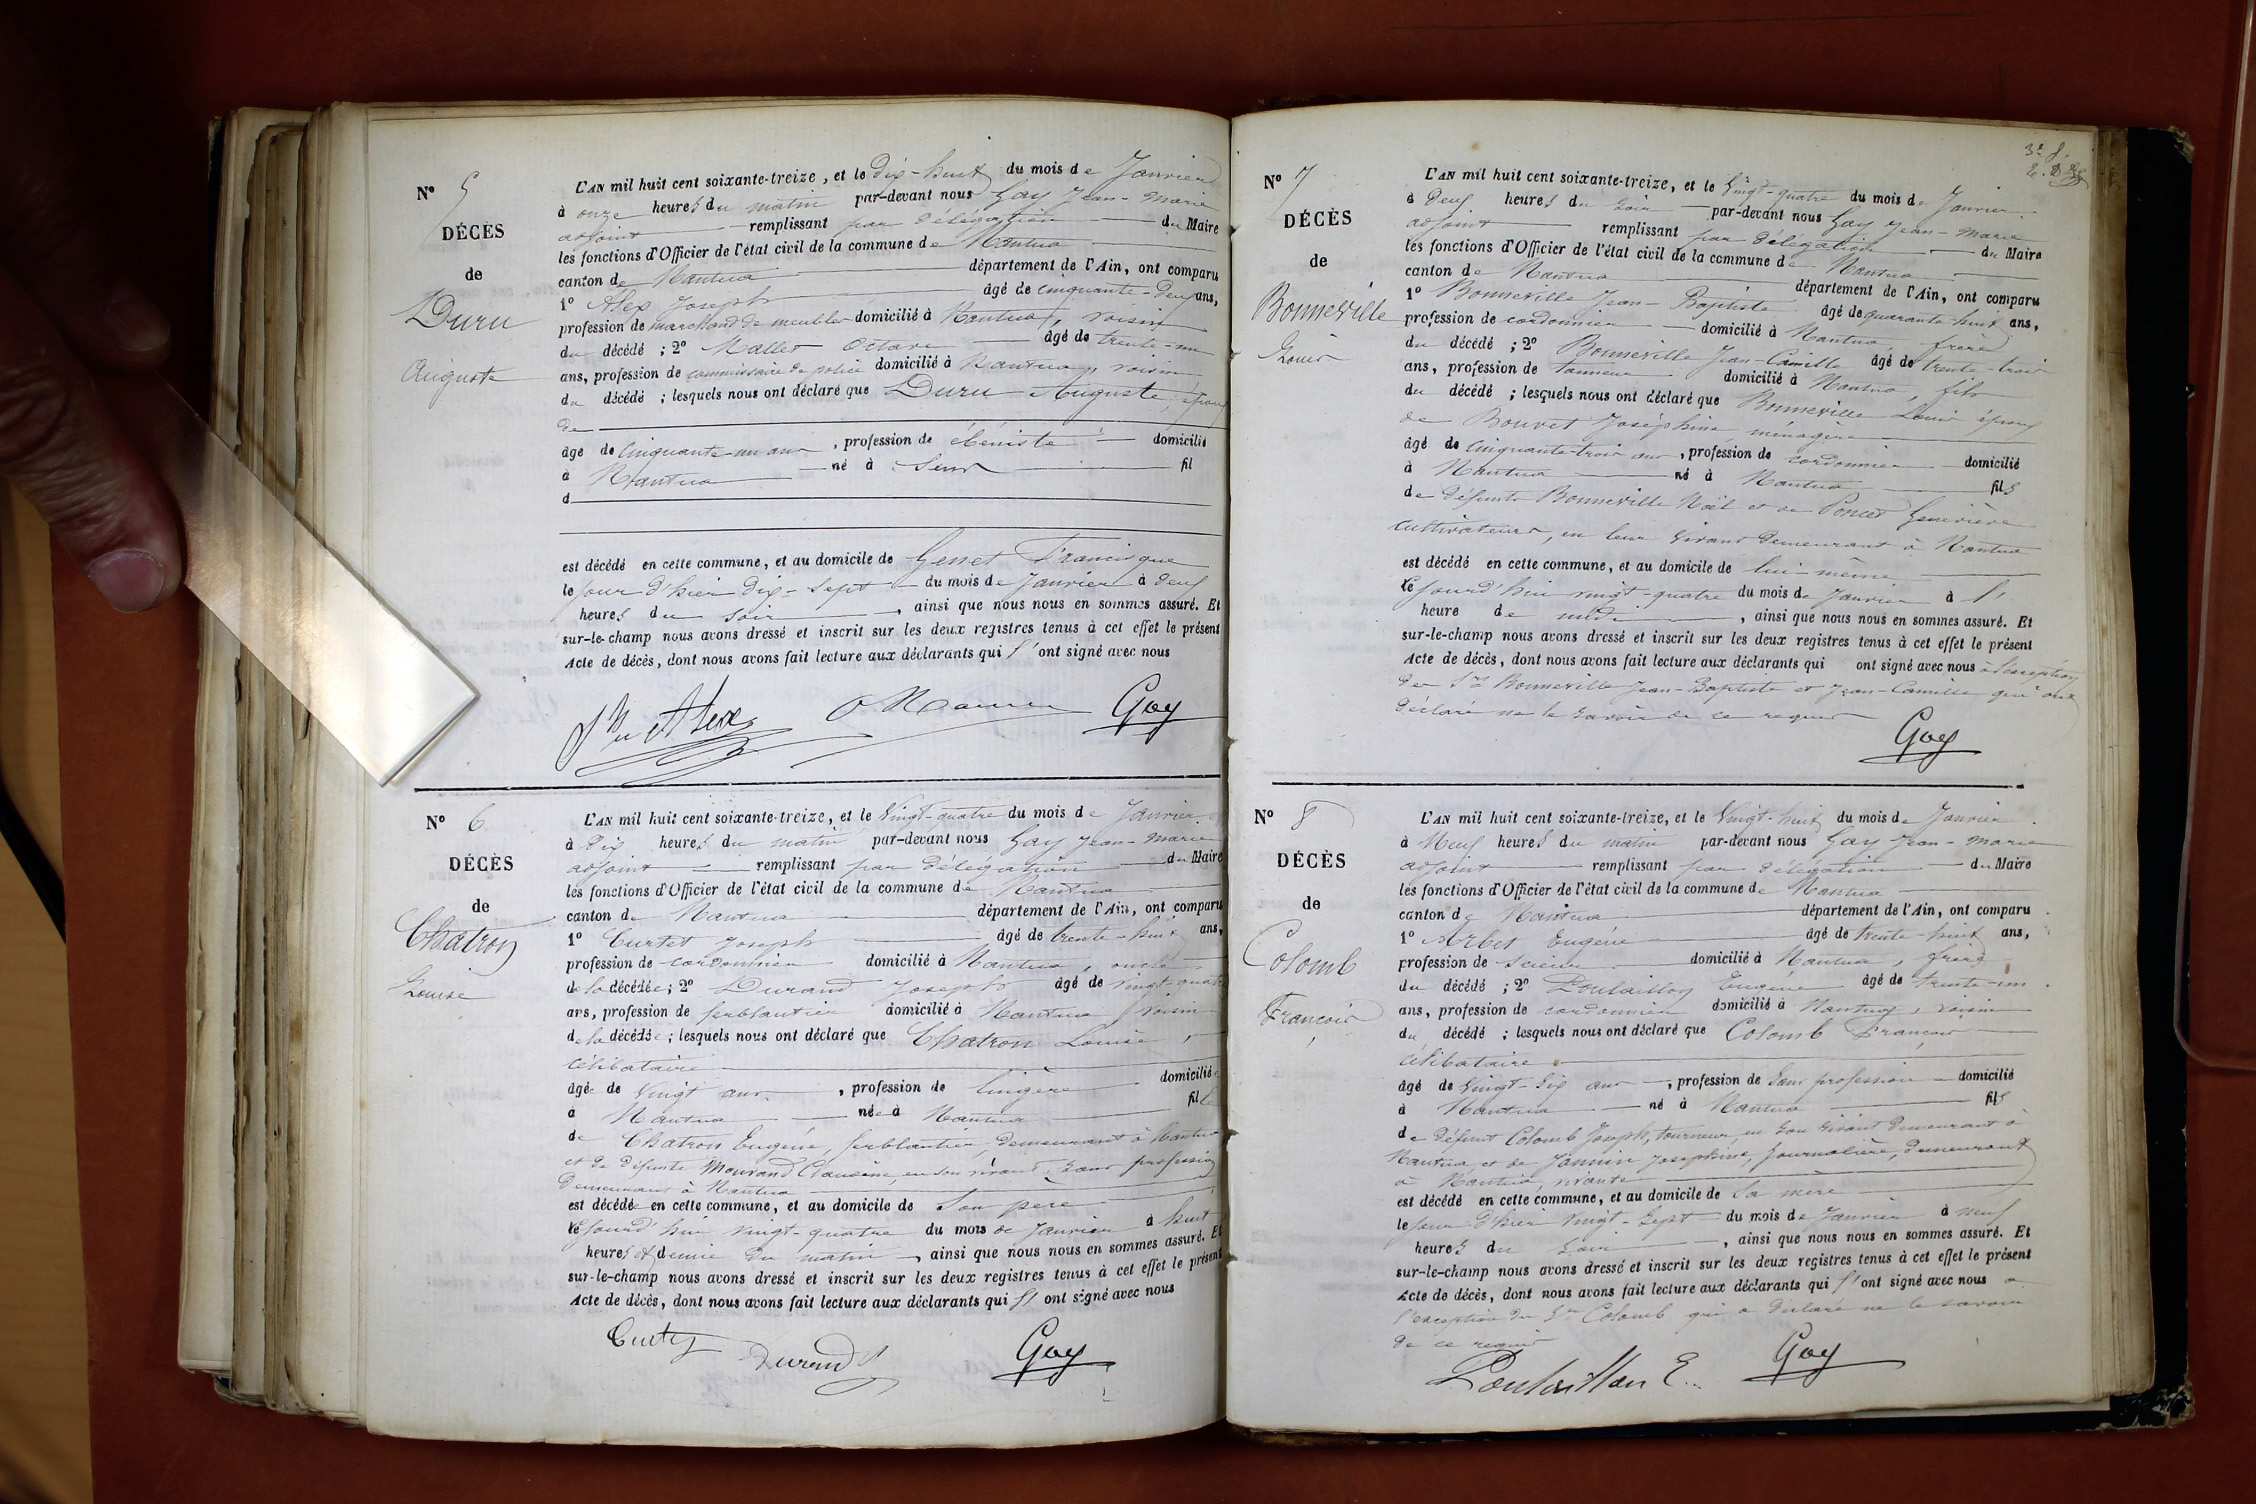 N° 5
DÉCÈS
de
Duru
Auguste
L'AN mil huit cent soixante-treize, et le Dix-huit du mois de Janvier
à onze heures du matin par-devant nous Gay Jean-Marie
adjoint remplissant par délégation du Maire
les fonctions d'Officier de l'état civil de la commune de Nantua
canton de Nantua département de l'Ain, ont comparu
1° Alex Joseph âgé de cinquante-deux ans,
profession de marchand de meubles domicilié à Nantua, voisin
du décédé ; 2° Octave âgé de trente-un
ans, profession de commissaire de police domicilié à Nantua, voisin
du décédé ; lesquels nous ont déclaré que Duru Auguste, époux
de
âge de cinquante-un ans, profession de ébéniste domicilié
à Nantua né à Sens fil
d
est décédé en cette commune, et au domicile de Genet Francisque
le jour d'hier dix-sept du mois de Janvier à deux
heures du soir, ainsi que nous nous en sommes assuré. Et
sur-le-champ nous avons dressé et inscrit sur les deux registres tenus à cet effet le présent
Acte de décès, dont nous avons fait lecture aux déclarants qui l'ont signé avec nous
Alex Gay
N° 6
DÉCÈS
de
Chatron
Louise
L'AN mil huit cent soixante-treize, et le Vingt-quatre du mois de Janvier
à dix heures du matin par-devant nous Gay Jean-Marie
adjoint remplissant par délégation du Maire
les fonctions d'Officier de l'état civil de la commune de Nantua
canton de Nantua département de l'Ain, ont comparu
1° Curtet Joseph âgé de trente-huit ans,
profession de cordonnier domicilié à Nantua, oncle
de la décédée ; 2° Durand Joseph âgé de vingt quatre
ans, profession de ferblantier domicilié à Nantua, voisin
de la décédée ; lesquels nous ont déclaré que Chatron Louise,
célibataire
âgée de vingt ans, profession de lingère domicilié
à Nantua née à Nantua fille
de Chatron Eugène, ferblantier, demeurant à Nantua
et de défunte Claudine, en son vivant, sans profession
demeurant à Nantua
est décédée en cette commune, et au domicile de son père
le jourd'hui vingt-quatre du mois de Janvier à huit
heures et demie du matin, ainsi que nous nous en sommes assuré. Et
sur-le-champ nous avons dressé et inscrit sur les deux registres tenus à cet effet le présent
Acte de décès, dont nous avons fait lecture aux déclarants qui l'ont signé avec nous
Durand Gay
N° 7
DÉCÈS
de
Bonneville
Louis
L'AN mil huit cent soixante-treize, et le Vingt-quatre du mois de Janvier
à deux heures du soir par-devant nous Gay Jean-Marie
adjoint remplissant par délégation du Maire
les fonctions d'Officier de l'état civil de la commune de Nantua
canton de Nantua département de l'Ain, ont comparu
1° Bonneville Jean-Baptiste âgé de quarante-huit ans,
profession de cordonnier domicilié à Nantua, frère
du décédé ; 2° Bonneville Jean-Camille âgé de trente-trois
ans, profession de Tanneur domicilié à Nantua, fils
du décédé ; lesquels nous ont déclaré que Bonneville Louis époux
de Bouvet Joséphine, ménagère
âgé de cinquante-trois ans, profession de cordonnier domicilié
à Nantua né à Nantua fils
de défunts Bonneville Noël et de Poncet Geneviève
cultivateurs, en leur vivant demeurant à Nantua
est décédé en cette commune, et au domicile de lui-même
le jourd'hui vingt-quatre du mois de Janvier à l'
heure de midi, ainsi que nous nous en sommes assuré. Et
sur-le-champ nous avons dressé et inscrit sur les deux registres tenus à cet effet le présent
Acte de décès, dont nous avons fait lecture aux déclarants qui ont signé avec nous à l'exception
des Srs Bonneville Jean-Baptiste et Jean-Camille qui ont
déclaré ne le savoir de ce requis
Gay
N° 8
DÉCÈS
de
Colomb
François
L'AN mil huit cent soixante-treize, et le Vingt-huit du mois de Janvier
à Neuf heures du matin par-devant nous Gay Jean-Marie
adjoint remplissant par délégation du Maire
les fonctions d'Officier de l'état civil de la commune de Nantua
canton de Nantua département de l'Ain, ont comparu
1° Arbet Eugène âgé de trente-huit ans,
profession de scieur domicilié à Nantua, frère
du décédé ; 2° Poulaillon Eugène âgé de trente-un
ans, profession de cordonnier domicilié à Nantua, voisin
du décédé ; lesquels nous ont déclaré que Colomb François
célibataire
âgé de vingt-six ans, profession de sans profession domicilié
à Nantua né à Nantua fils
de défunt Colomb Joseph, tourneur, en son vivant demeurant à
Nantua et de Joséphine, journalière, demeurant
à Nantua, vivante
est décédé en cette commune, et au domicile de sa mère
le jour d'hier vingt-sept du mois de Janvier à neuf
heures du soir, ainsi que nous nous en sommes assuré. Et
sur-le-champ nous avons dressé et inscrit sur les deux registres tenus à cet effet le présent
Acte de décès, dont nous avons fait lecture aux déclarants qui l'ont signé avec nous à
l'exception du Sr Colomb qui a déclaré ne le savoir
de ce requis
Poulaillon E. Gay